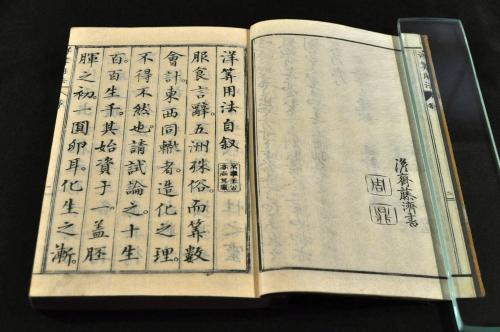 藤濟書
洋筭用法自叙
服食言辭。五洲殊俗。而筭數
會計。東西同轍者。造化之理。
不得不然也。請試論之。十生
百。百生千。其始資于一。蓋胚
腪之初。一圓卵耳。化生之漸。